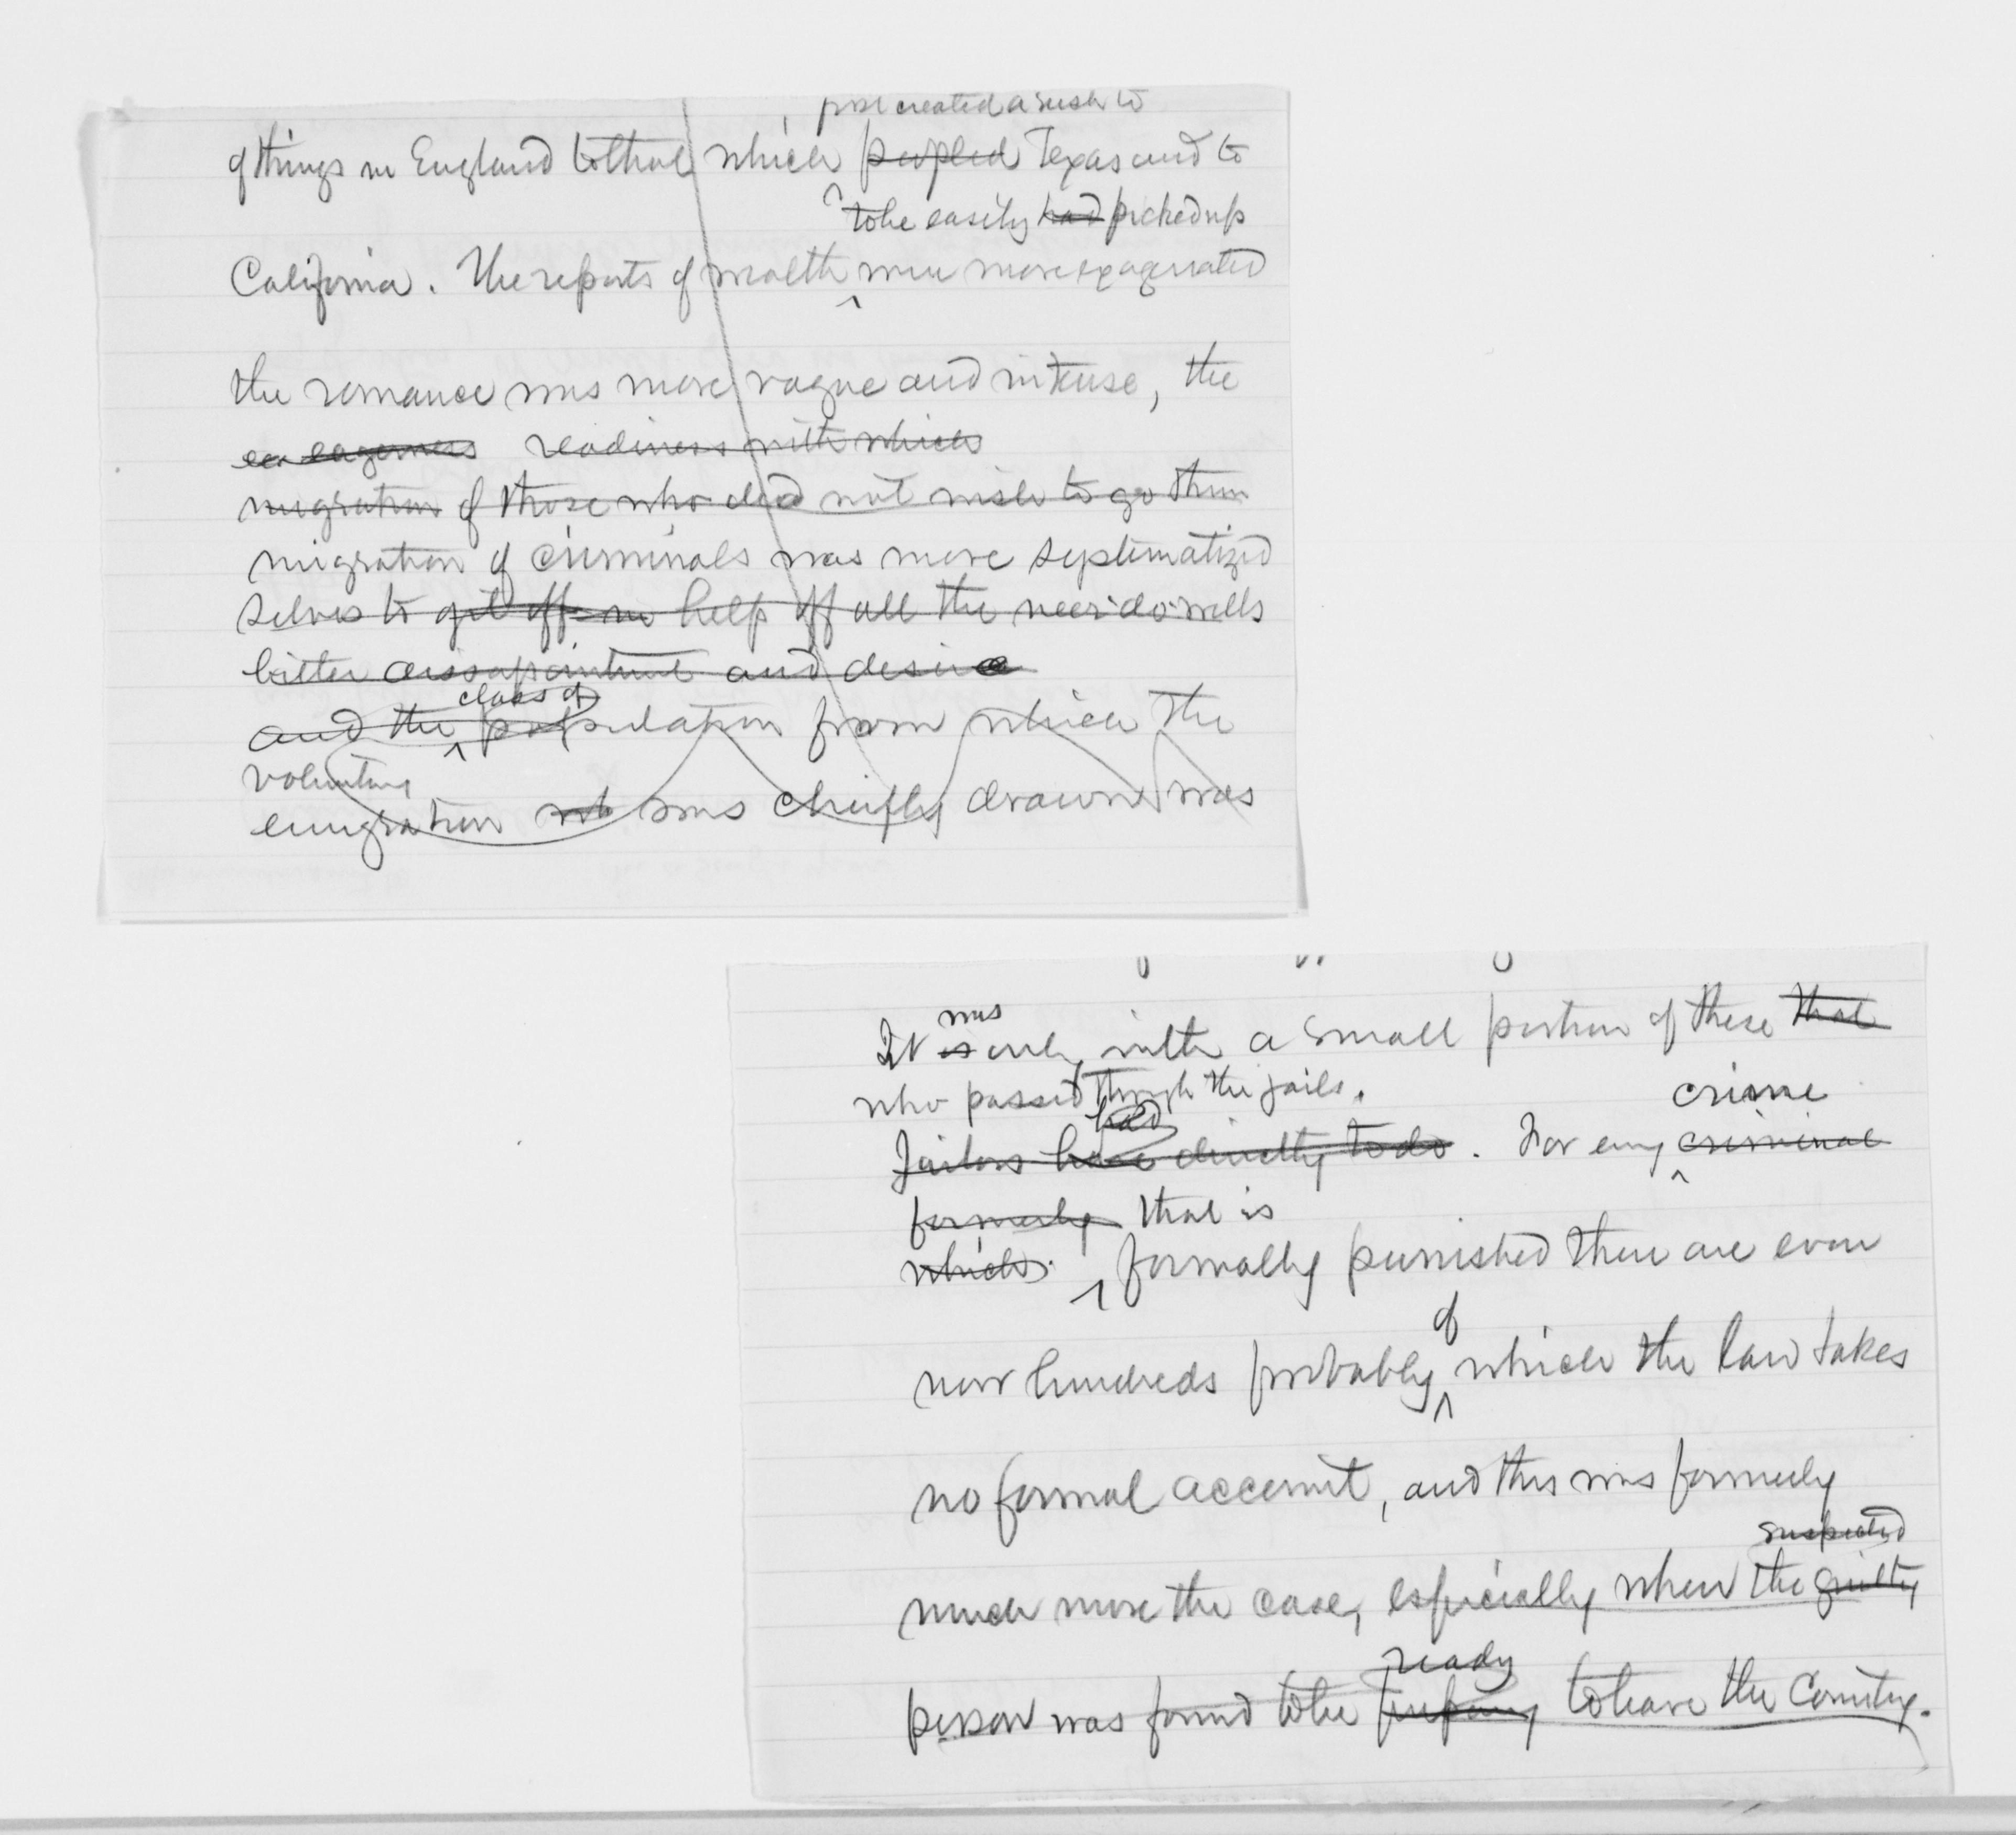 first created a rush to
of things in England to that which peopled Texas and to
to be easily had picked up
California. The reports of wealth were more exagerrated
the romance was more vague and intense, the
eagerness readiness with which
migration of those who did not wish to go them
migration of criminals was more systematized
selves to get off help off all the neer-do-wells
bitter dissapointment and desire
class of
and the population from which the
voluntary
emigration was chiefly drawn was
was
It is only with a small portion of these that
who passed through the jails.
crime
had
Jailors have directly to do. For every criminal
formerly that is
which formally punished there are even
of
now hundreds probably which the law takes
no formal account, and this was formerly
suspected
much more the case, especially when the guilty
ready
person was found to be to leave the Country.